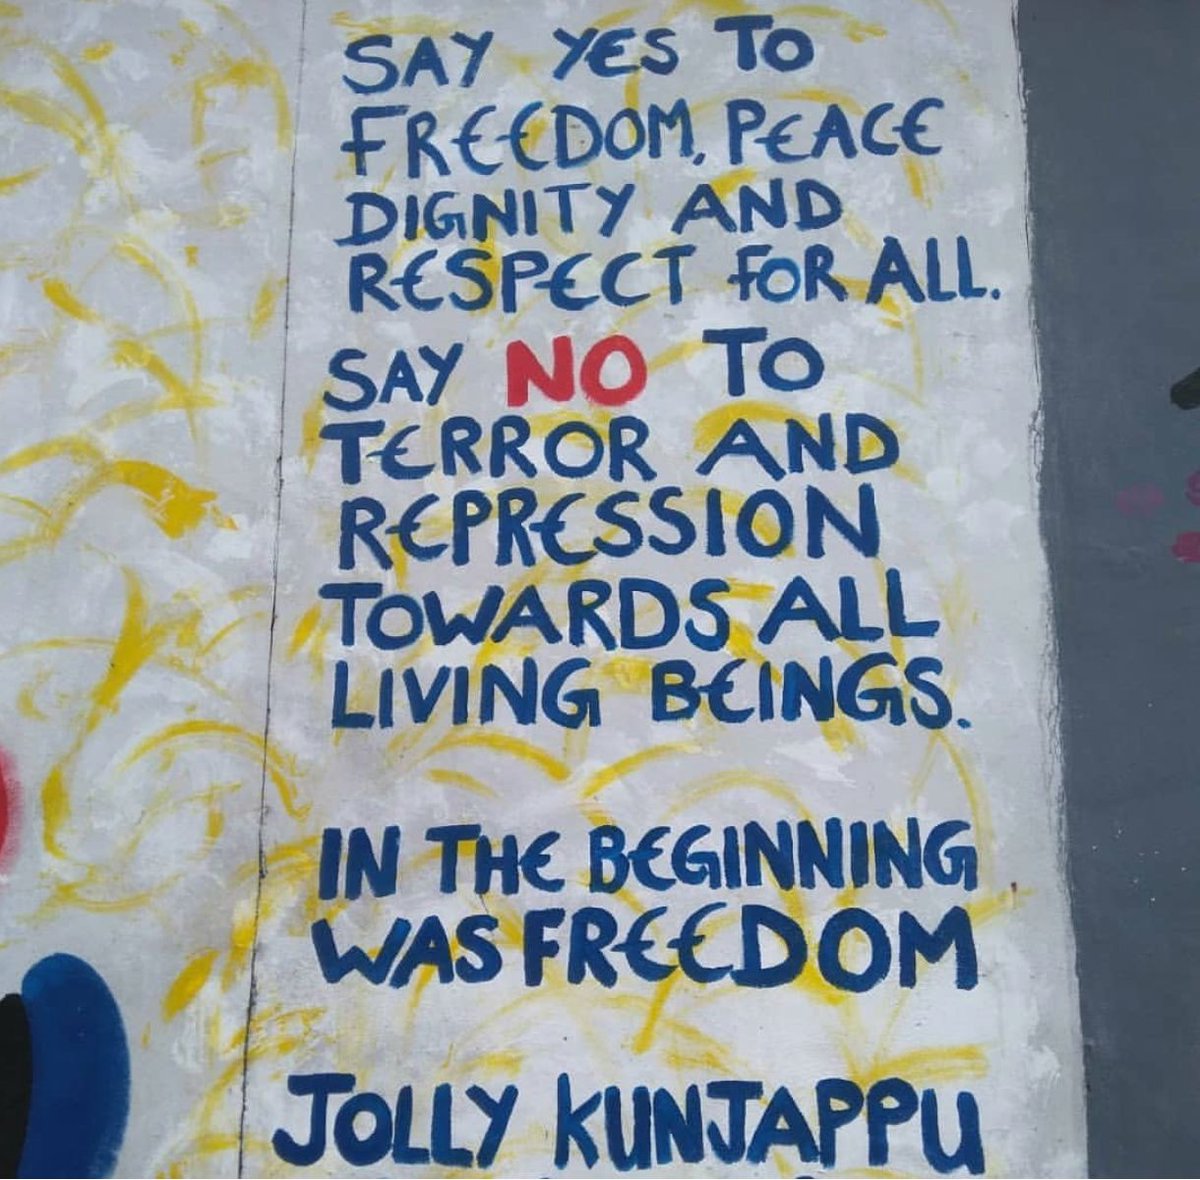 SAY YES TO
FREEDOM, PEACE
DIGNITY AND
RESPECT FOR ALL.
SAY NO TO
TERROR AND
REPRESSION
TOWARDS ALL
LIVING BEINGS.
IN THE BEGINNING
WAS FREEDOM
JOLLY KUNJAPPU